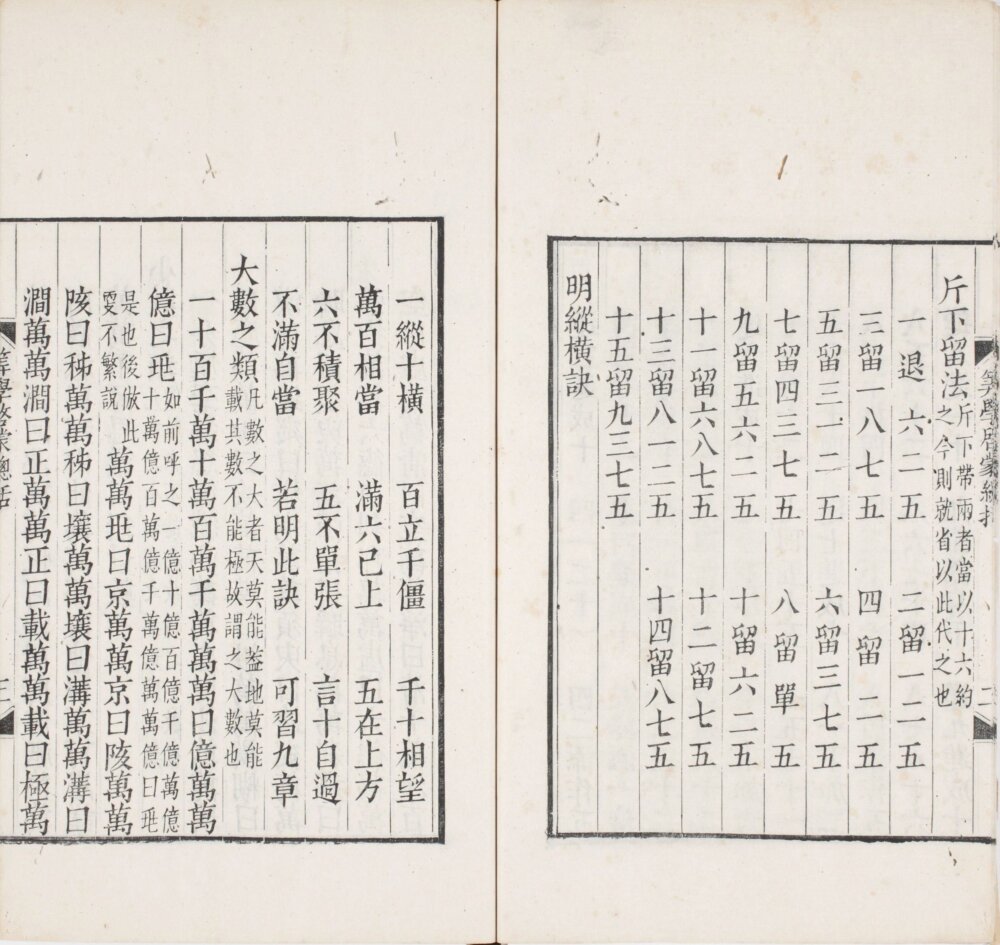 斤下留法斤下帶兩者當以十六約
之今則就省以此代之也
一退六二五 二留一二五
三留一八七五 四留二五
五留三一二五 六留三七五
七留四三七五 八留單五
九留五六二五 十留六二五
十一留六八七五 十二留七五
十三留八一二五 十四留八七五
十五留九三七五
明縱橫訣
一縱十橫 百立千僵 千十相望
萬百相當 滿六已上 五在上方
六不積聚 五不單張 言十自過
不滿自當 若明此訣 可習九章
大數之類凡數之大者天莫能蓋地莫能
載其數不能極故謂之大數也
一十百千萬十萬百萬千萬萬萬曰億萬萬
億曰𠔱如前呼之一億十億百億千億萬億
十萬億百萬億千萬億萬萬億曰𠔱
是也後倣此
更不繁說萬萬𠔱曰京萬萬京曰陔萬萬
陔曰秭萬萬秭曰壤萬萬壤曰溝萬萬溝曰
澗萬萬澗曰正萬萬正曰載萬萬載曰極萬